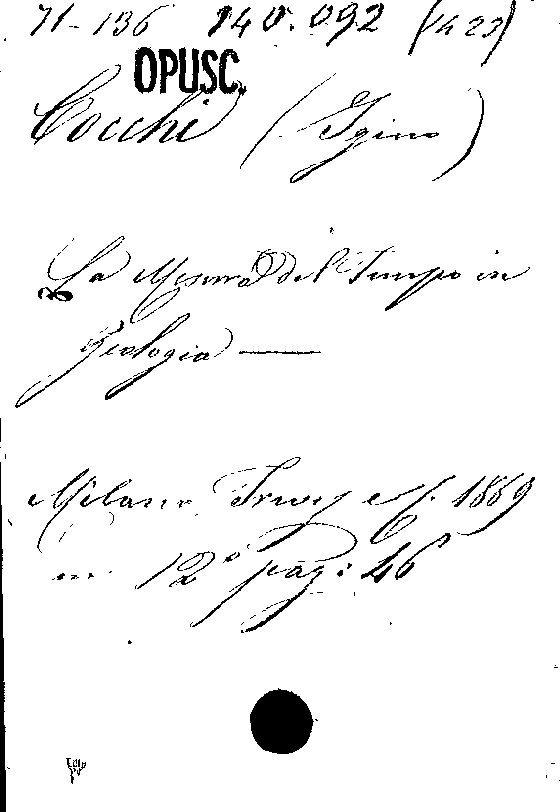 71-136 140.092 (14 23)
OPUSC.
Cocchi (Igino)
La Misura del Tempo in
Geologia —
Milano Treves e C. 1869
in 12° pag: 46